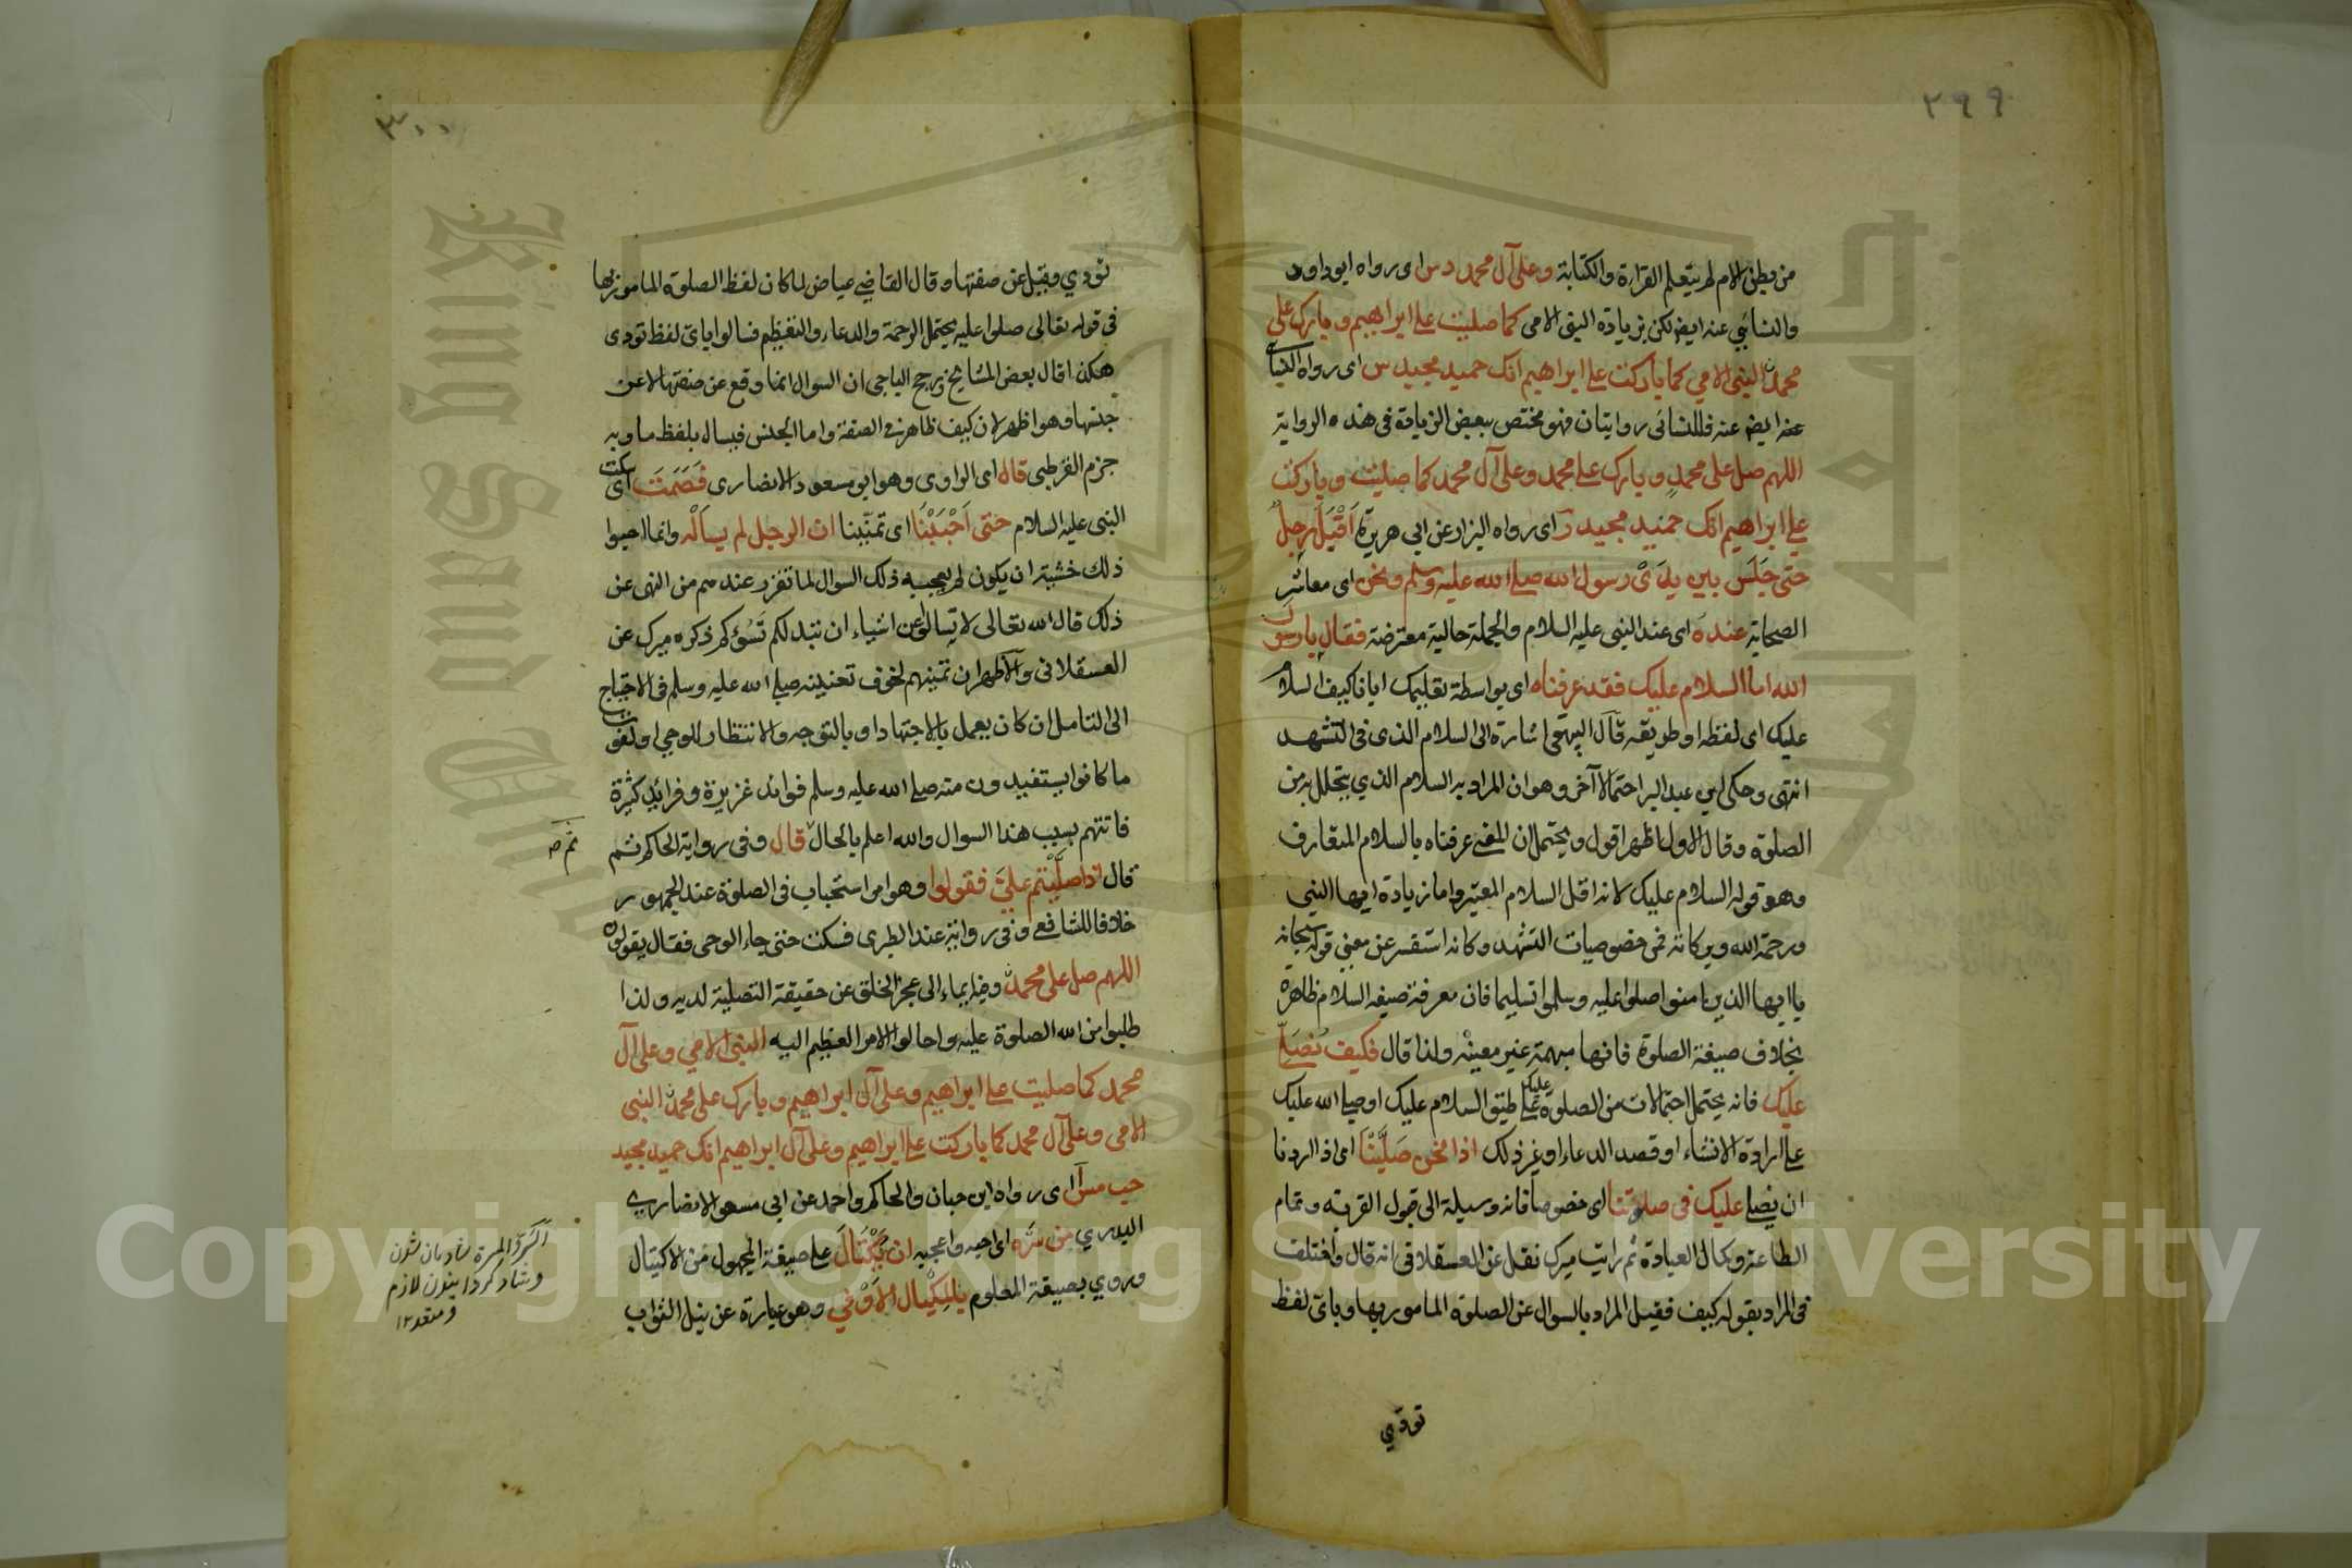 ٢٩٩
من بطن الام لم يتعلم القراءة والكتابة وعلى آل محمد د س اى رواه ابو داود
والنسائي عنه ايضا لكن بزيادة النبى الامى كما صليت على ابراهيم وبارك على
محمد النبى الامي كما باركت على ابراهيم انك حميد مجيد س اى رواه النسائي
عنه ايضا عنه فللنسائى روايتان فهو مختص ببعض الزيادة فى هذه الرواية
اللهم صل على محمد وبارك على محمد وعلى آل محمد كما صليت وباركت
على ابراهيم انك حميد مجيد ر اى رواه البزار عن ابى هريرة اَقْبَلَ رجلٌ
حتى جَلَسَ بين يدَىْ رسول الله صلى الله عليه وسلم ونحن اى معاشر
الصحابة عنده اى عند النبى عليه السلام والجملة حالية معترضة فقال يا رسول
الله اما السلام عليك فقد عرفناه اى بواسطة تعليمك ايانا كيف السلام
عليك اى لفظه او طريقه قال البيهقى اشارة الى السلام الذى فى التشهد
انتهى وحكى ابن عبد البر احتمالا آخر وهو ان المراد به السلام الذي يتحلل به من
الصلوة وقال الاول اظهر اقول ويحتمل ان المعنى عرفناه بالسلام المتعارف
وهو قوله السلام عليك لانه اقل السلام المعتبر واما زيادة ايها النبى
ورحمة الله وبركاته فمن خصوصيات التشهد وكانه استفسر عن معنى قوله سبحانه
يا ايها الذين امنوا صلوا عليه وسلموا تسليما فان معرفة صيغة السلام ظاهرة
بخلاف صيغة الصلوة فانها مبهمة غير معينة ولذا قال فكيف نُصَلِّى
عليك فانه يحتمل احتمالات من الصلوة عليك على طبق السلام عليك او صلى الله عليك
على ارادة الانشاء او قصد الدعاء او غير ذلك اذا نحن صَلَّيْنَا اى اذا اردنا
ان نصلى عليك فى صلوتنا اى خصوصا فانه وسيلة الى قبول القربة وتمام
الطاعة وكمال العبادة ثم رايت ميرك نقل عن العسقلانى انه قال واختلف
فى المراد بقوله كيف فقيل المراد بالسوال عن الصلوة المامور بها وباى لفظ
تودي
٣٠٠
تودي وقيل عن صفتها وقال القاضي عياض لما كان لفظ الصلوة المامور بها
فى قوله تعالى صلوا عليه يحتمل الرحمة والدعاء والتعظيم فسالوا باى لفظ تودى
هكذا قال بعض المشايخ ورجح الباجى ان السوال انما وقع عن صفتها لا عن
جنسها وهو اظهر لان كيف ظاهر فى الصفة واما الجنس فيسال بلفظ ما وبه
جزم القرطبى قال اى الراوى وهو ابو مسعود الانصارى فَصَمَتَ اى سكت
النبى عليه السلام حتى اَحْبَبْنَا اى تمنينا ان الرجل لم يسأله وانما احبوا
ذلك خشية ان يكون لم يعجبه ذلك السوال لما تقرر عندهم من النهى عن
ذلك قال الله تعالى لا تسالوا عن اشياء ان تبد لكم تَسُؤكم ذكره ميرك عن
العسقلانى والاظهر ان تمنيهم لخوف تعذيبه صلى الله عليه وسلم فى الاحتياج
الى التامل ان كان يعمل بالاجتهاد او بالتوجه والانتظار للوحى او لفوت
ما كانوا يستفيدون منه صلى الله عليه وسلم فوائد غزيرة وفرائد كثيرة
فاتتهم بسبب هذا السوال والله اعلم بالحال قال وفى رواية الحاكم ثم
قال اذا صلَّيتم علىَّ فقولوا وهو امر استحباب فى الصلوة عند الجمهور
خلافا للشافعى وفى رواية عند الطبرى فسكت حتى جاء الوحى فقال يقولون
اللهم صل على محمد وفيه ايماء الى عجز الخلق عن حقيقة التصلية لديه ولذا
طلبوا من الله الصلوة عليه واحالوا الامر العظيم اليه النبى الامي وعلى آل
محمد كما صليت على ابراهيم وعلى آل ابراهيم وبارك على محمد النبى
الامى وعلى آل محمد كما باركت على ابراهيم وعلى آل ابراهيم انك حميد مجيد
حب مس ا اى رواه ابن حبان والحاكم واحمد عن ابى مسعود الانصاري
البدري من سَرَّه اى احبه واعجبه ان يُكْتَالَ على صيغة المجهول من الاكتيال
وروي بصيغة المعلوم بالمِكْيال الاَوْفى وهو عبارة عن نيل الثواب
السر والمسرة شادمان شدن
وشاد كردانيدن لازم
ومتعد ١٢
Copyright © King Saud University
King Saud University
جامعة الملك